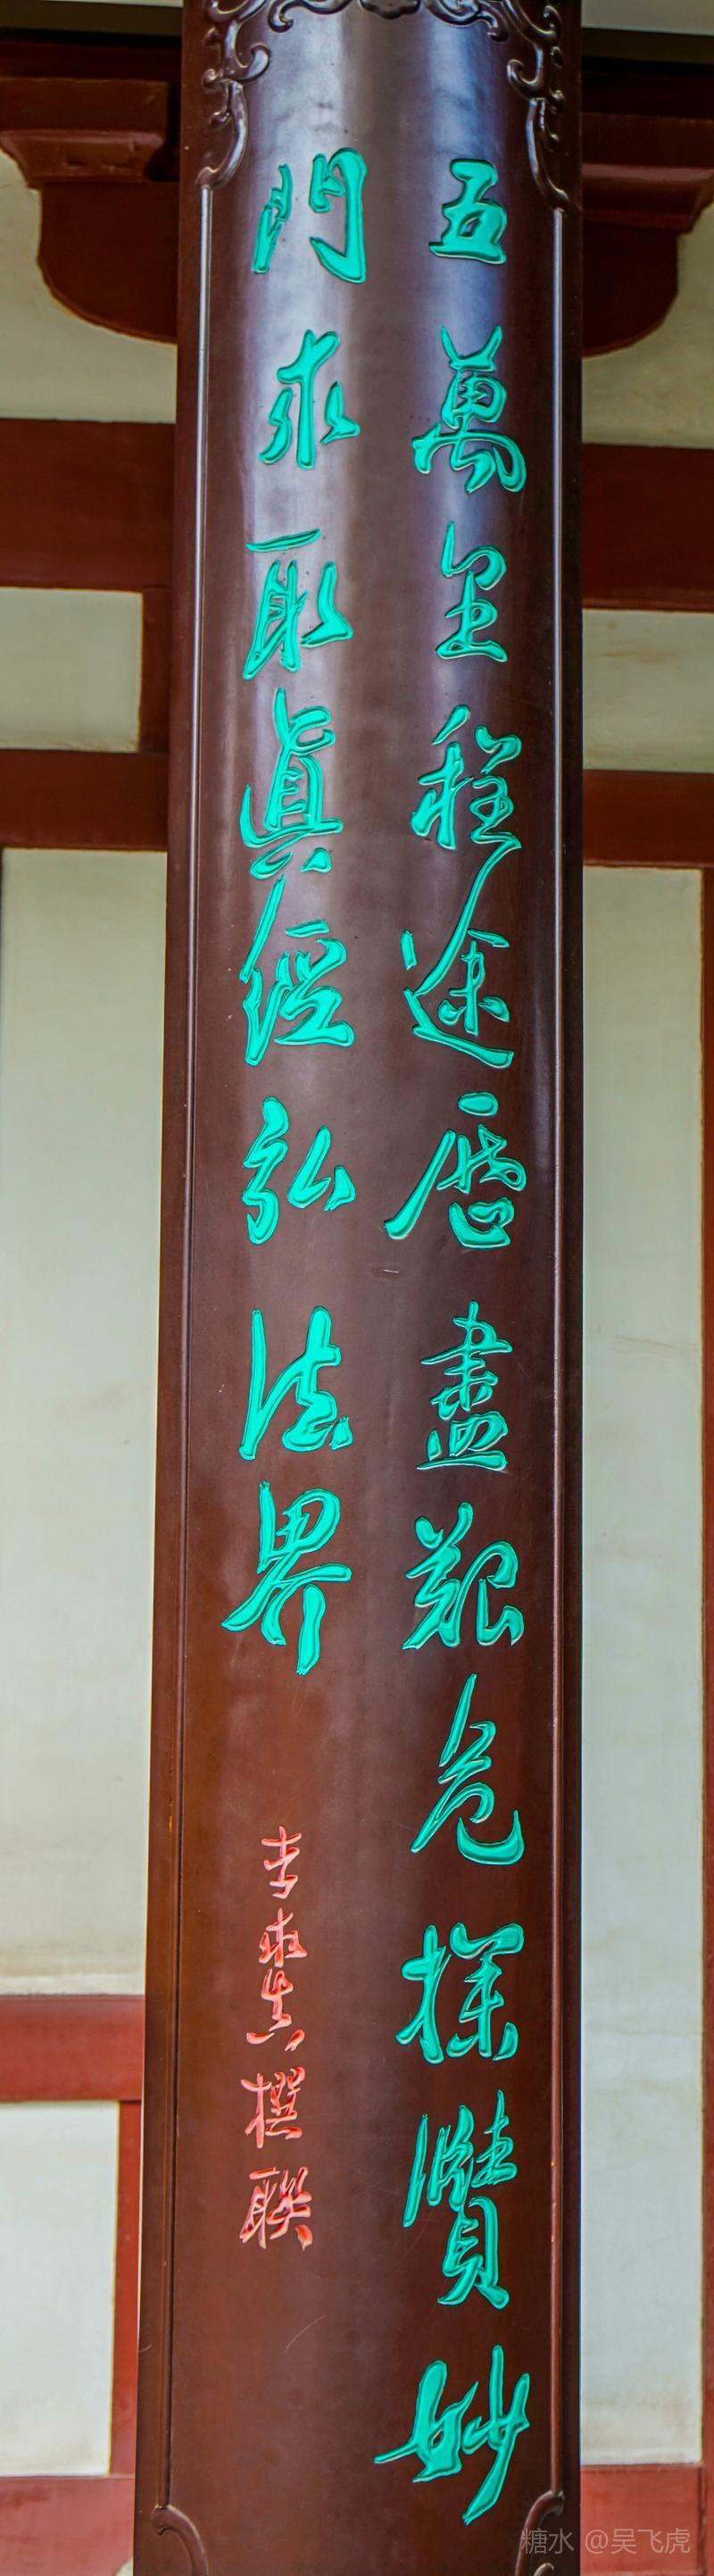 五萬里程途歷盡艱危探賾妙
門求取眞經弘法界
李撰聯
糖水 @吴飞虎